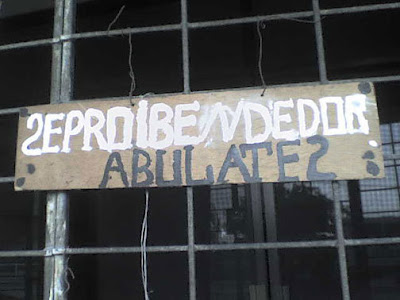 SEPROiBENDEDOR.
ABULATES